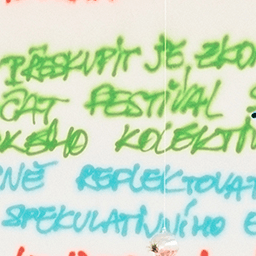 PŘESKUPIT JE, ZKO
ČAT FESTIVAL S
KÉHO KOLEKTIV
NĚ REFLEKTOVAT
SPEKULATIVNÍHO